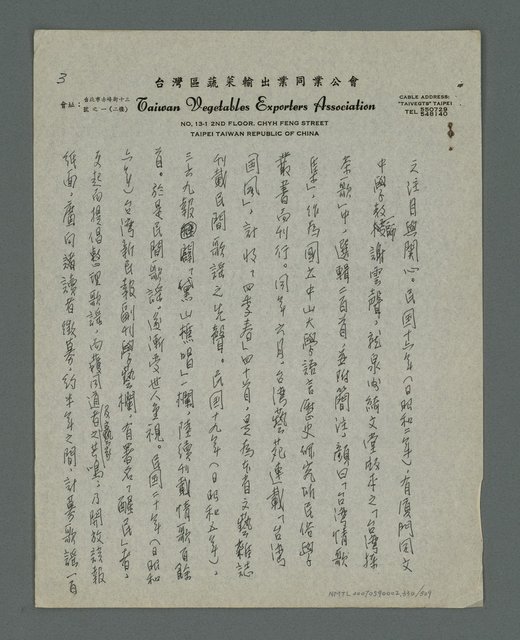 3
台灣區蔬菜輸出業同業公會
會址：台北市赤峰街十三號之一(二樓)
Taiwan Vegetables Exporters Association
NO, 13-1 2ND FLOOR, CHYH FENG STREET
TAIPEI TAIWAN REPUBLIC OF CHINA
CABLE ADDRESS:
"TAIVEGTS" TAIPEI
TEL 550729
548140
之注目與關心。民國十六年(日昭和二年)，有廈門同文
中學教師謝雲聲，就泉州綺文堂版本之「台灣採
茶歌」中，選輯二百首，並附簡注，顏曰「台灣情歌
集」，作為國立中山大學語言歷史研究所民俗學
叢書而刊行。同年六月，台灣藝苑連載「台灣
國風」，計收「四季春」四十首，是為本省文藝雜誌
刊載民間歌謠之先聲。民國十九年(日昭和五年)，
三六九報闢「黛山樵唱」一欄，陸續刊載情歌百餘
首。於是民間歌謠逐漸受世人重視。民國二十年(日昭和
六年)台灣新民報副刊學藝欄，有署名「醒民」者，
文起而提倡整理歌謠，而獲同道者之共鳴，乃開放該報
紙面，廣向讀者徵募，約半年之間，計募歌謠一百
NMTL20070590002_330/509